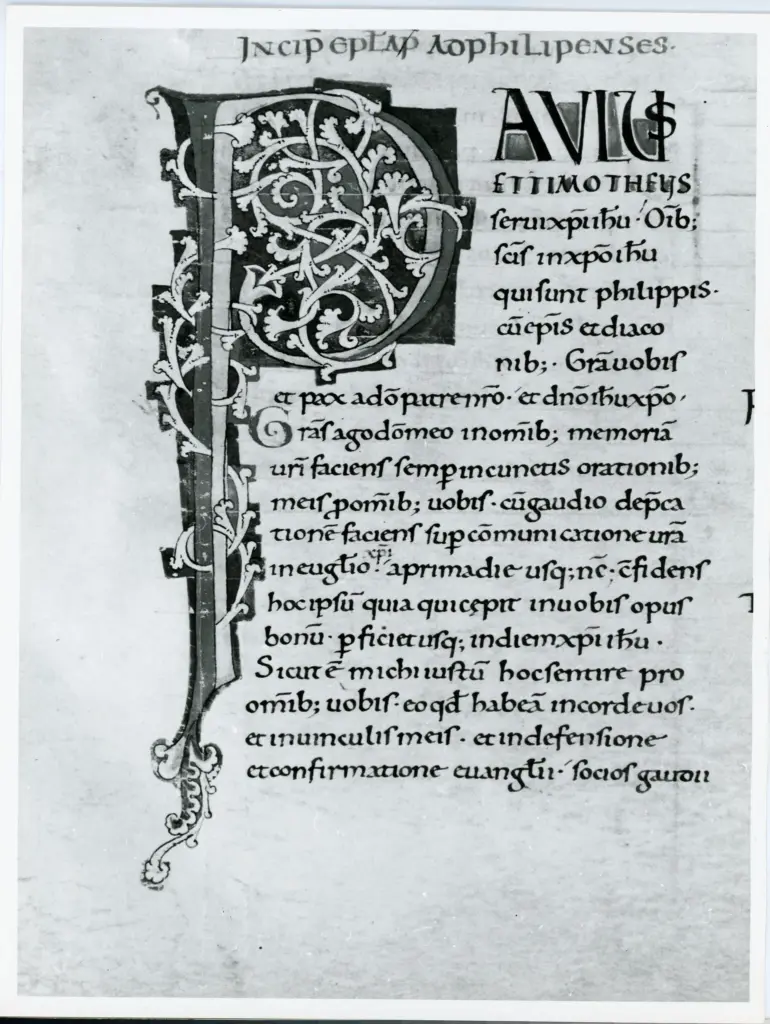 INCIP̄ EPL̄A AP̄ ADPHILIPENSES·
PAULUS
ETTIMOTHEUS
seruixp̄iih̄u · Oīb;
sc̄is inxp̄oih̄u
quisunt philippis·
cū ep̄is etdiaco
nib; · Gr̄a uobis
et pax ad̄o patrenr̄o · et dn̄oih̄uxp̄o ·
Gr̄as ago dōmeo inom̄ib; memoriā
urī faciens semp̄ incunctis orationib;
meis p̄ om̄ib; uobis · cū gaudio dep̄ca
tionē faciens sup̄ cōmunicatione ur̄a
in eugl̄io xp̄i · aprimadie usq; nc̄ · c̄fidens
hoc ipsū quia qui cepit inuobis opus
bonū · p̄ficiet usq; indiem xp̄i ih̄u ·
Sicut ē michi iustū hoc sentire pro
om̄ib; uobis · eo qd̄ habeā incorde uos ·
et inuinculis meis · et indefensione
et confirmatione euangl̄ii · socios gaudii